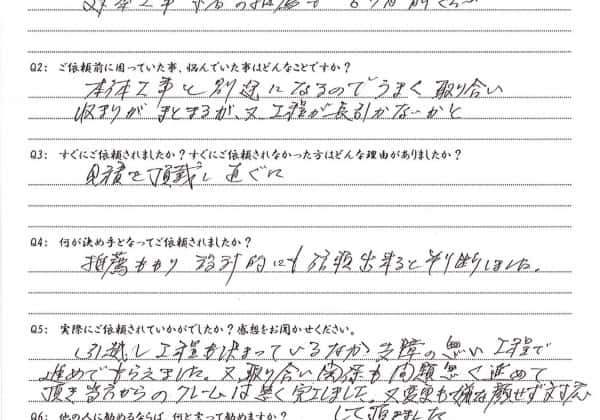 Q2: ご依頼前に困っていた事、悩んでいた事はどんなことですか？
本体工事と別途になるのでうまく取り合い
収まりがまとまるが、又工程が長引かないかと
Q3: すぐにご依頼されましたか？すぐにご依頼されなかった方はどんな理由がありましたか？
見積を頂戴し直ぐに
Q4: 何が決め手となってご依頼されましたか？
推薦もあり 設計的にも信頼出来ると判断しました。
Q5: 実際にご依頼されていかがでしたか？感想をお聞かせください。
引越し工程も決まっているなか支障の無い工程で
進めてもらえました。又取り合い関係も問題無く進めて
頂き当方からのクレームは無く完工しました。又変更も嫌な顔せず対応
して頂きました
Q6: 他の人に勧めるならば、何と言って勧めますか？